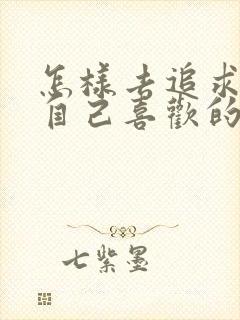 怎樣去追求
自己喜歡的
七紫墨